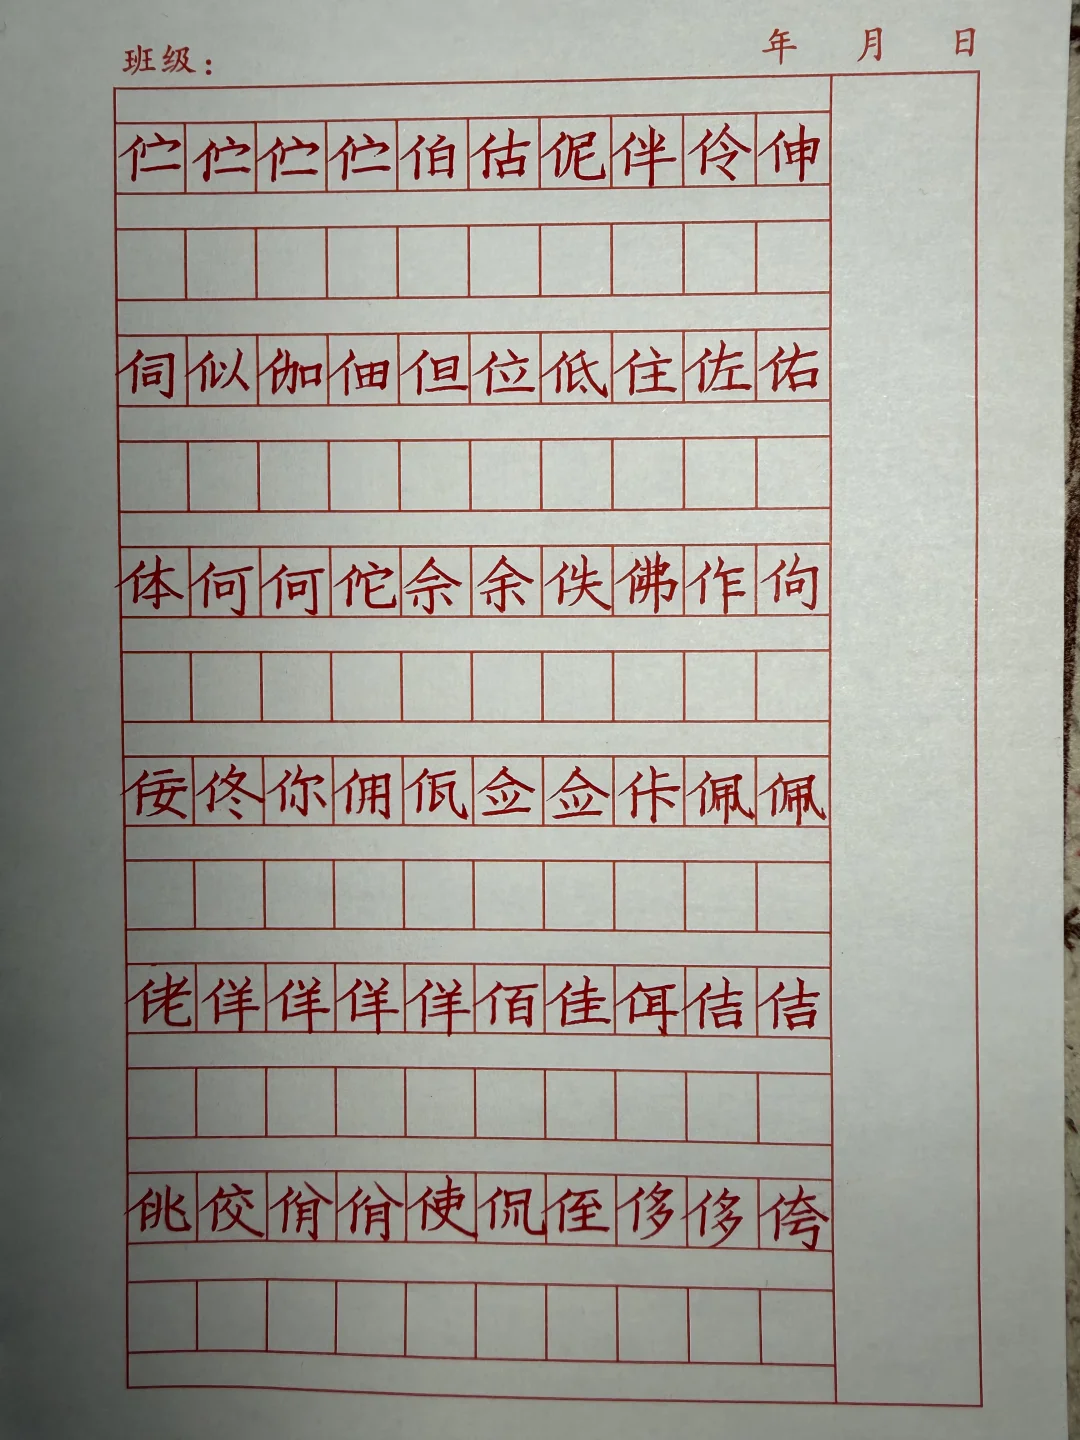 班级： 年 月 日
伫伫伫伫伯估伲伴伶伸
伺似伽佃但位低住佐佑
体何何佗佘余佚佛作佝
佞佟你佣佤佥佥佧佩佩
佬佯佯佯佯佰佳佴佶佶
佻佼佾佾使侃侄侈侈侉